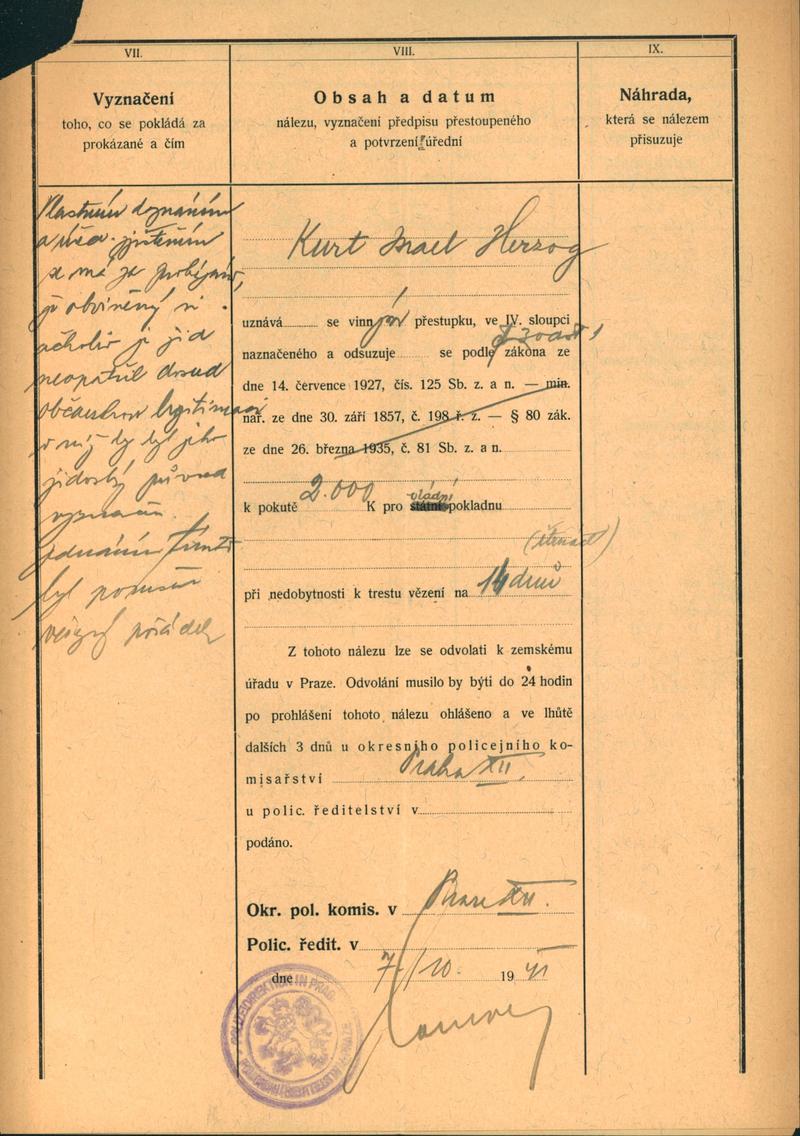 VII.
Vyznačení
toho, co se pokládá za
prokázané a čím
Vlastním doznáním
a úřed. zjištěním
se má za prokázáno,
že obviněný si
ačkoliv je žid
neopatřil dosud
občanskou legitimaci
v níž by byl jeho
židovský původ
vyznačen.
jednáním tímto
byl porušen
veřejný pořádek
VIII.
Obsah a datum
nálezu, vyznačení předpisu přestoupeného
a potvrzení úřední
Kurt Israel Herzog
uznává se vinným přestupku, ve IV. sloupci
naznačeného a odsuzuje se podle § 3 odst. 1 zákona ze
dne 14. července 1927, čís. 125 Sb. z. a n. — min.
nař. ze dne 30. září 1857, č. 198 ř. z. — § 80 zák.
ze dne 26. března 1935, č. 81 Sb. z. a n.
k pokutě 2.000 K pro státní vládní pokladnu
(čtrnáct)
při nedobytnosti k trestu vězení na 14 dnů
Z tohoto nálezu lze se odvolati k zemskému
úřadu v Praze. Odvolání musilo by býti do 24 hodin
po prohlášení tohoto nálezu ohlášeno a ve lhůtě
dalších 3 dnů u okresního policejního ko-
misařství Praha XII.
u polic. ředitelství v
podáno.
Okr. pol. komis. v Praze XII.
Polic. ředit. v
dne 7./10. 1941
POLIZEIDIREKTION IN PRAG
POLICEJNÍ ŘEDITELSTVÍ V PRAZE
IX.
Náhrada,
která se nálezem
přisuzuje